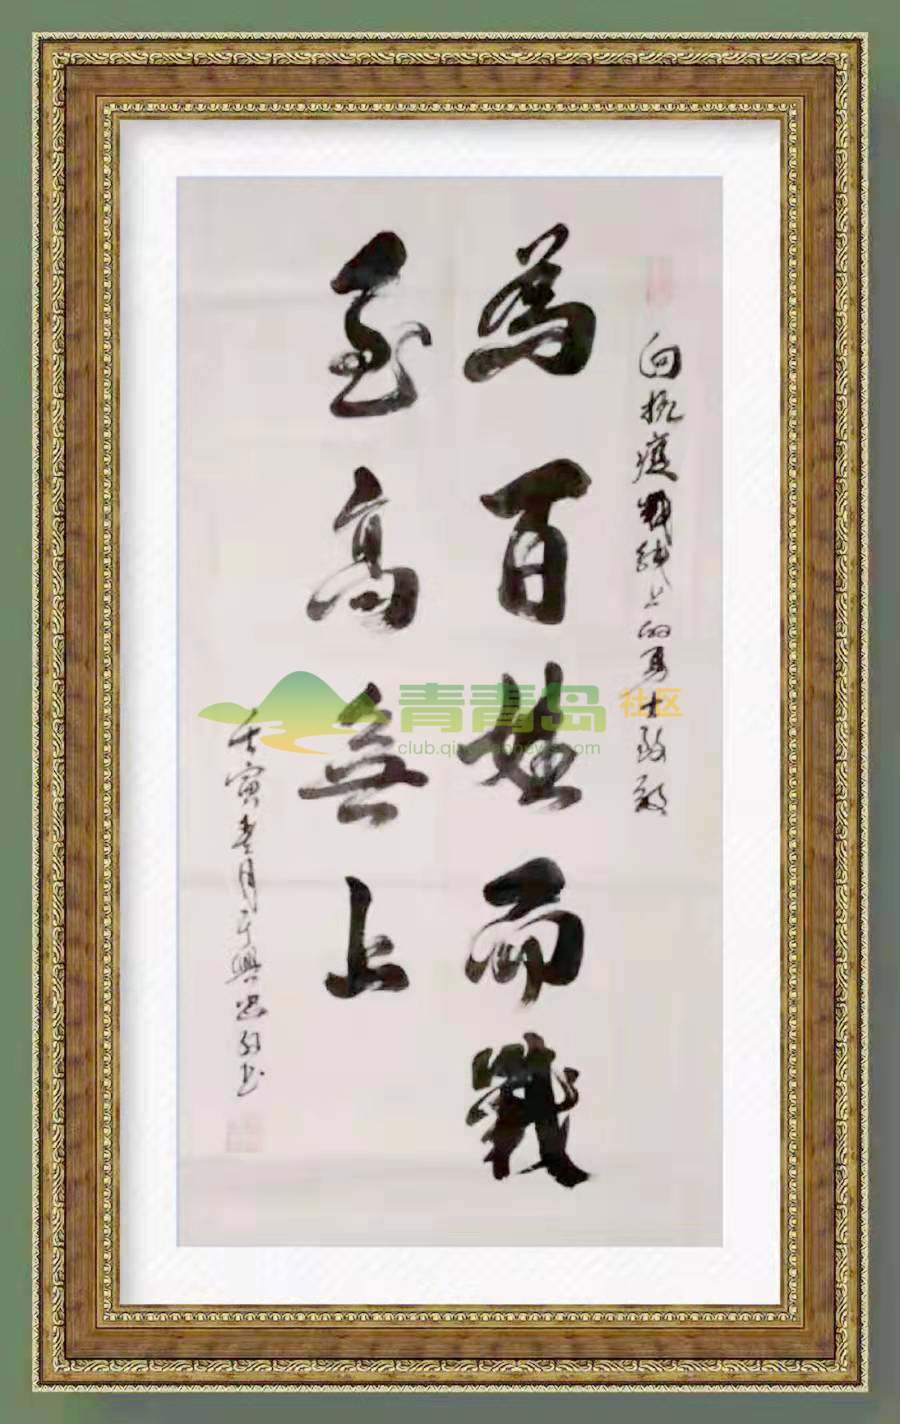 向抗疫戰线上的勇士致敬
為百姓而戰
至高無上
壬寅春月于興忠敬书
青青岛社区
club.qingdaonews.com